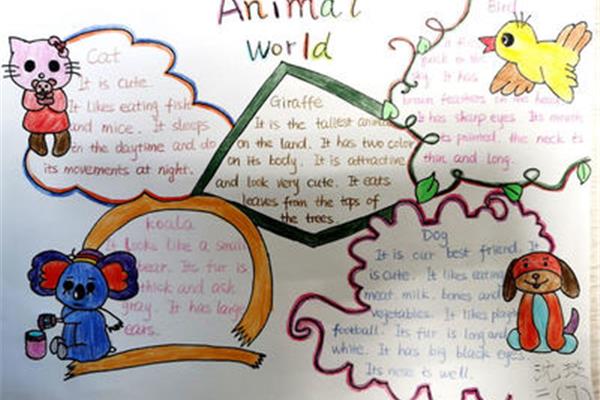 Animal
World
Cat
It is cute.
It likes eating fish
and mice. It sleeps
in the daytime and do
its movements at night.
Giraffe
It is the tallest animal
on the land. It has two color
on its body. It is attractive
and look very cute. It eats
leaves from the tops of
the trees.
Bird
sky. It has
brown feathers on the head.
It has sharp eyes. Its mouth
is pointed. the neck is
thin and long.
koala
It looks like a small
bear. Its fur is
thick and ash
gray. It has large
ears.
Dog
It is our best friend. It
is cute. It likes eating
meat. milk. bones and
vegetables. It likes playing
football. Its fur is long and
white. It has big black eyes.
Its nose is well.